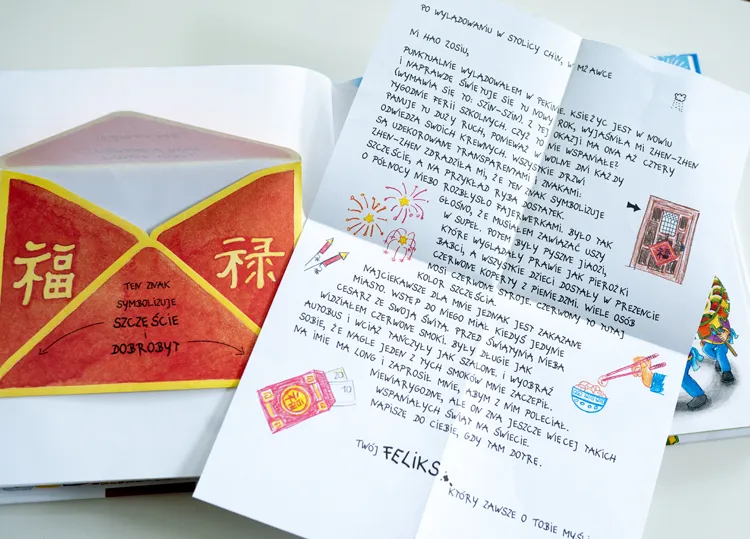 福
禄
TEN ZNAK
SYMBOLIZUJE
SZCZĘŚCIE
I
DOBROBYT
PO WYLĄDOWANIU W STOLICY CHIN, W MŻAWCE
NI HAO ZOSIU,
PUNKTUALNIE WYLĄDOWAŁEM W PEKINIE. KSIĘŻYC JEST W NOWIU
I NAPRAWDĘ ŚWIĘTUJE SIĘ TU NOWY ROK, WYJAŚNIŁA MI ZHEN-ZHEN
(WYMAWIA SIĘ TO: SZIN-SZIN). Z TEJ OKAZJI MA ONA AŻ CZTERY
TYGODNIE FERII SZKOLNYCH. CZYŻ TO NIE WSPANIAŁE?
PANUJE TU DUŻY RUCH, PONIEWAŻ W WOLNE DNI KAŻDY
ODWIEDZA SWOICH KREWNYCH. WSZYSTKIE DRZWI
SĄ UDEKOROWANE TRANSPARENTAMI I ZNAKAMI.
ZHEN-ZHEN ZDRADZIŁA MI, ŻE TEN ZNAK SYMBOLIZUJE
SZCZĘŚCIE, A NA PRZYKŁAD RYBA DOSTATEK.
O PÓŁNOCY NIEBO ROZBŁYSŁO FAJERWERKAMI. BYŁO TAK
GŁOŚNO, ŻE MUSIAŁEM ZAWIĄZAĆ USZY
W SUPEŁ. POTEM BYŁY PYSZNE JIAOZI,
KTÓRE WYGLĄDAŁY PRAWIE JAK PIEROŻKI
BABCI, A WSZYSTKIE DZIECI DOSTAŁY W PREZENCIE
CZERWONE KOPERTY Z PIENIĘDZMI. WIELE OSÓB
NOSI CZERWONE STROJE. CZERWONY TO TUTAJ
KOLOR SZCZĘŚCIA.
NAJCIEKAWSZE DLA MNIE JEDNAK JEST ZAKAZANE
MIASTO. WSTĘP DO NIEGO MIAŁ KIEDYŚ JEDYNIE
CESARZ ZE SWOJĄ ŚWITĄ. PRZED ŚWIĄTYNIĄ NIEBA
WIDZIAŁEM CZERWONE SMOKI. BYŁY DŁUGIE JAK
AUTOBUS I WCIĄŻ TAŃCZYŁY JAK SZALONE. I WYOBRAŹ
SOBIE, ŻE NAGLE JEDEN Z TYCH SMOKÓW MNIE ZACZEPIŁ.
NA IMIĘ MA LONG I ZAPROSIŁ MNIE, ABYM Z NIM POLECIAŁ.
NIEWIARYGODNE, ALE ON ZNA JESZCZE WIĘCEJ TAKICH
WSPANIAŁYCH ŚWIĄT NA ŚWIECIE.
NAPISZĘ DO CIEBIE, GDY TAM DOTRĘ.
TWÓJ FELIKS
KTÓRY ZAWSZE O TOBIE
20
10
福